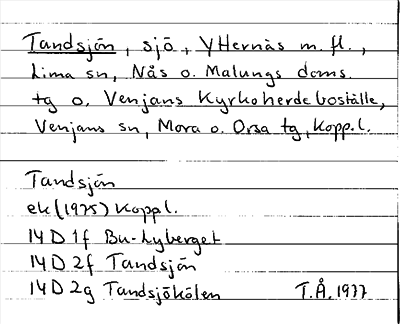 Tandsjön, sjö, Ytternäs m. fl.,
Lima sn, Nås o. Malungs doms.
tg o. Venjans Kyrkoherdeboställe,
Venjans sn, Mora o. Orsa tg, Koppl.
Tandsjön
ek (1975) Koppl.
14D 1f Bu-Lyberget
14D 2f Tandsjön
14D 2g Tandsjökölen T.Å. 1977